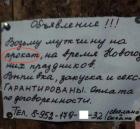 Объявление !!!
Возьму мужчину на
прокат, на время Нового
них праздников.
Выпивка, закуска и секс
ГАРАНТИРОВАНЫ. Оплата
по договоренности.
ТЕЛ. 8-952-179- -32